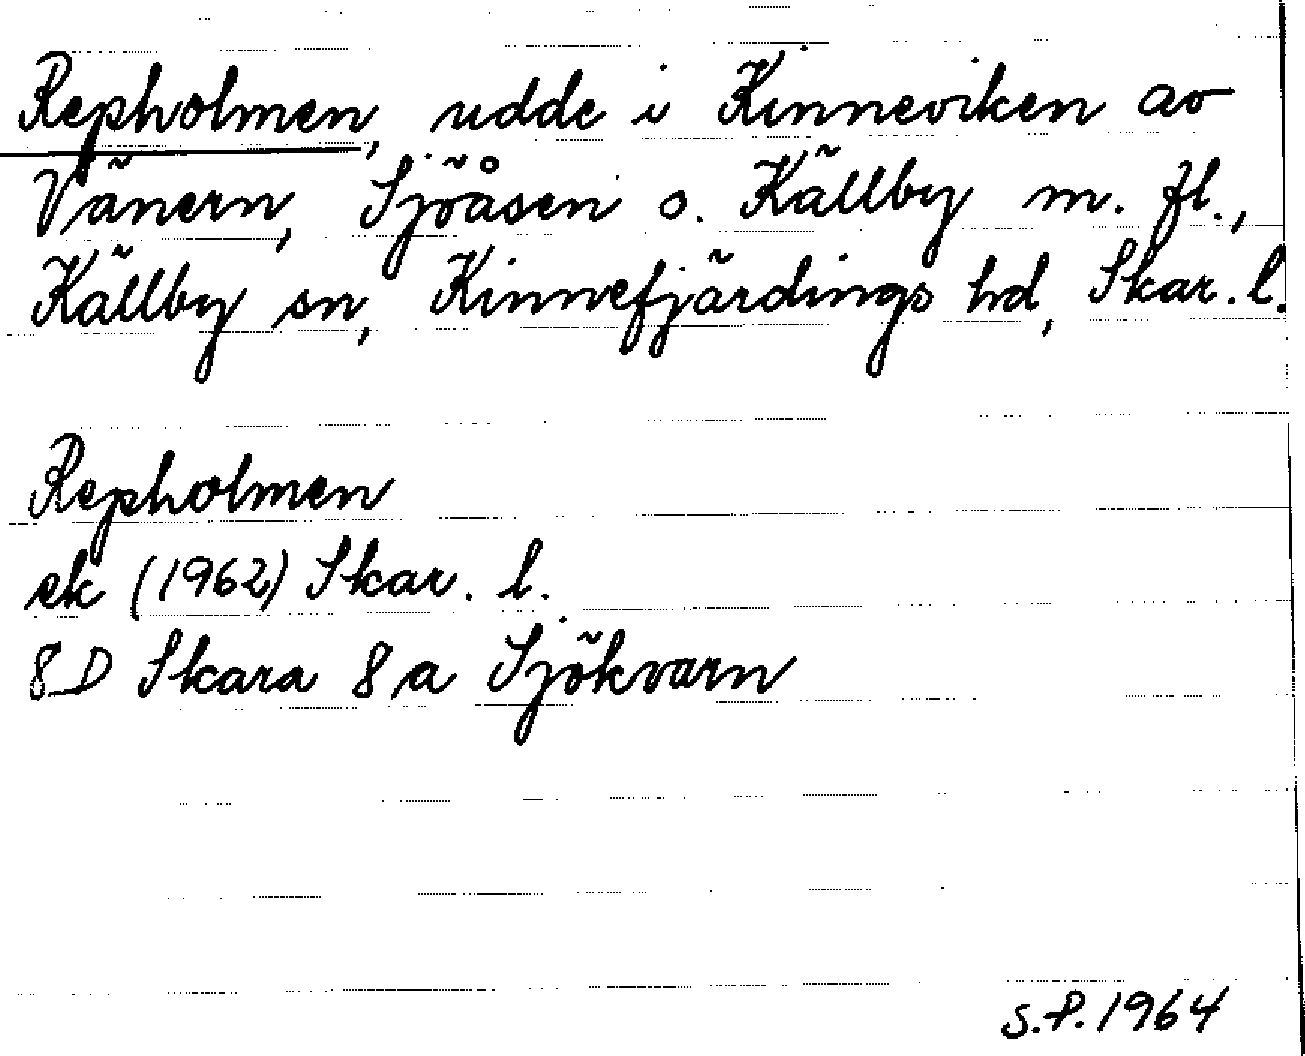 Repholmen, udde i Kinneviken av
Vänern, Sjöåsen o. Källby m. fl.,
Källby sn, Kinnefjärdings hd, Skar. l.
Repholmen
ek (1962) Skar. l.
8D Skara 8a Sjökvarn
S.P. 1964